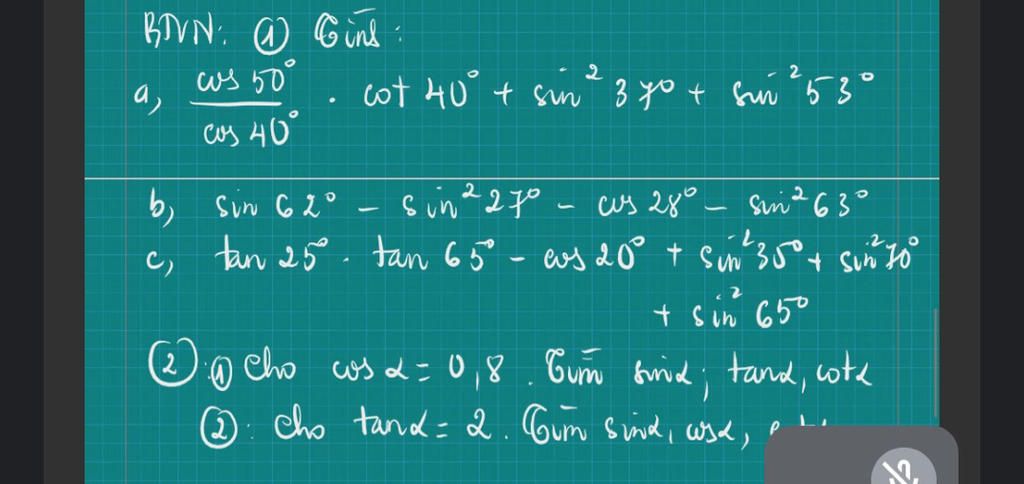 BTVN: ① Tính:
a, cos 50° / cos 40° . cot 40° + sin² 37° + sin² 53°
b, sin 62° − sin² 27° − cos 28° − sin² 63°
c, tan 25° . tan 65° − cos 20° + sin² 35° + sin² 70°
+ sin² 65°
② : ① Cho cos α = 0,8 . Tìm sin α; tan α, cot α
② : Cho tan α = 2. Tìm sin α, cos α,